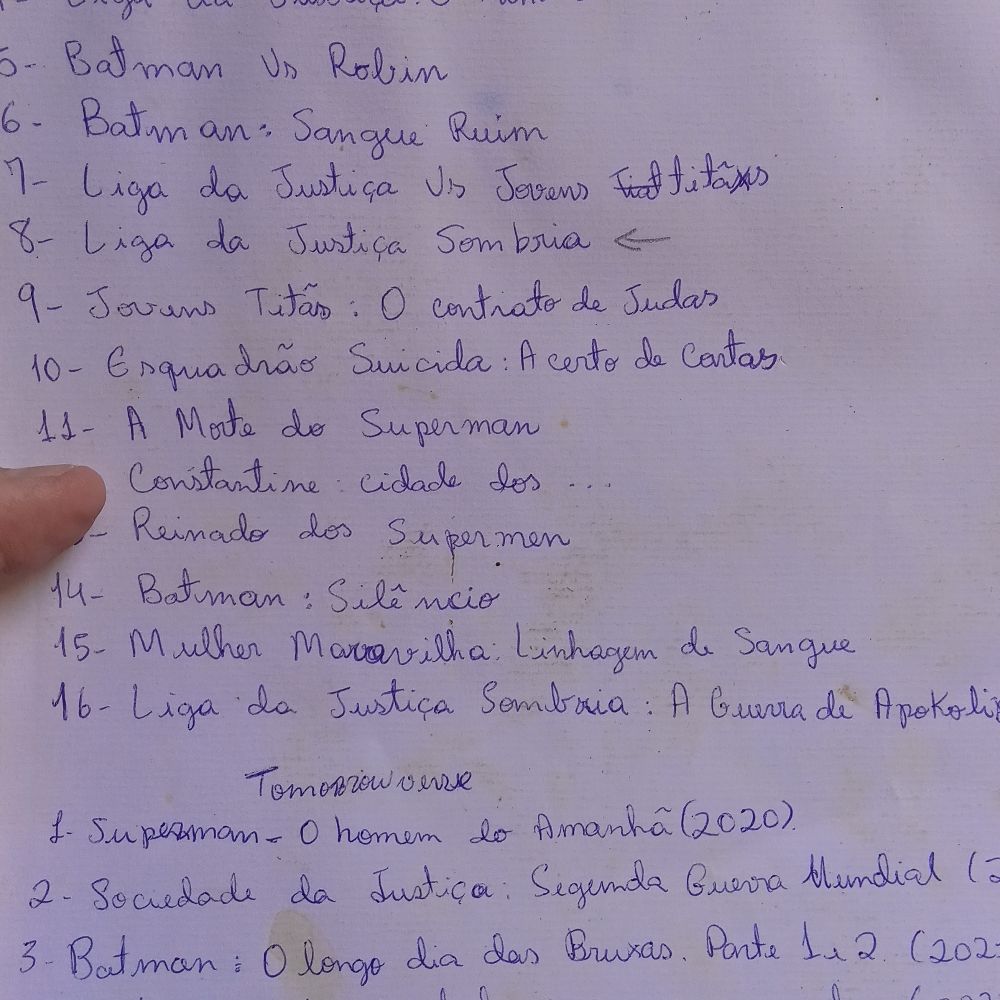 5- Batman Vs Robin
6- Batman: Sangue Ruim
7- Liga da Justiça Vs Jovens titãs
8- Liga da Justiça Sombria ←
9- Jovens Titãs: O contrato de Judas
10- Esquadrão Suicida: Acerto de Contas.
11- A Morte do Superman
Constantine: cidade dos ...
- Reinado dos Supermen
14- Batman: Silêncio
15- Mulher Maravilha: Linhagem de Sangue
16- Liga da Justiça Sombria: A Guerra de Apokolips
Tomorrowverse
1- Superman - O homem do Amanhã (2020).
2- Sociedade da Justiça: Segunda Guerra Mundial (2
3- Batman: O longo dia das Bruxas. Parte 1 e 2. (202